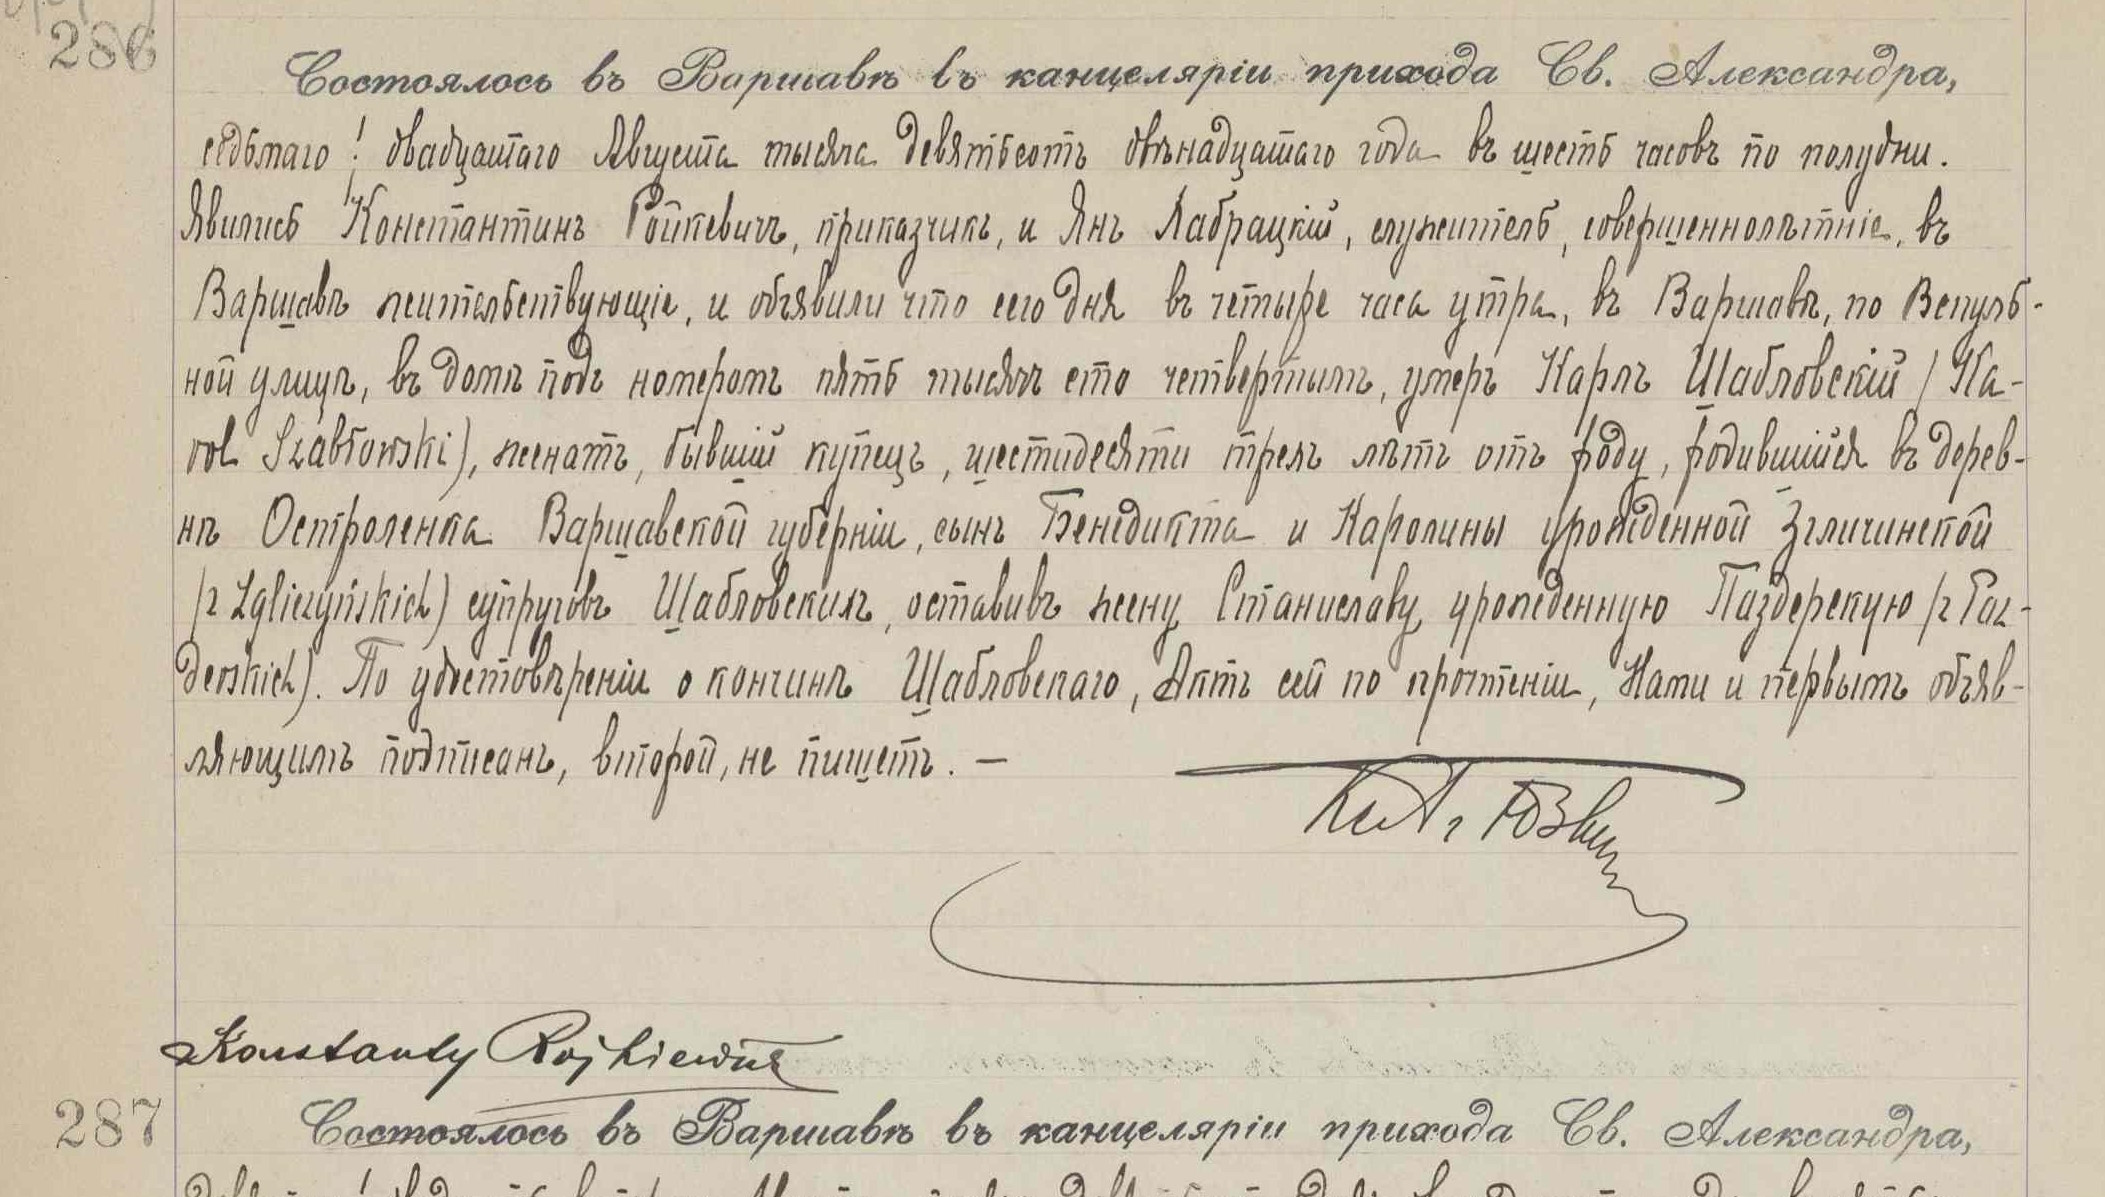 286
Состоялось въ Варшавѣ въ канцеляріи прихода Св. Александра,
седьмаго / двадцатаго Августа тысяча девятьсотъ двѣнадцатаго года въ шесть часовъ по полудни.
Явились Константинъ Ройкевичъ, приказчикъ, и Янъ Лабрацкій, служитель, совершеннолѣтніе, въ
Варшавѣ жительствующіе, и объявили что сего дня въ четыре часа утра, въ Варшавѣ, по Вспуль-
ной улицѣ, въ домѣ подъ номеромъ пять тысячъ сто четвертымъ, умеръ Карлъ Шабловскій /Ka-
rol Szabłowski), женатъ, бывшій купецъ, шестидесяти трехъ лѣтъ отъ роду, родившійся въ дерев-
нѣ Остроленка Варшавской губерніи, сынъ Бенедикта и Каролины урожденной Згличинской
/z Zgliczyńskich) супруговъ Шабловскихъ, оставивъ жену Станиславу урожденную Паздерскую /z Paz-
derskich). По удостовѣреніи о кончинѣ Шабловскаго, Актъ сей по прочтеніи, Нами и первымъ объяв-
ляющимъ подписанъ, второй, не пишетъ. —
Konstanty Rojkiewicz
287
Состоялось въ Варшавѣ въ канцеляріи прихода Св. Александра,